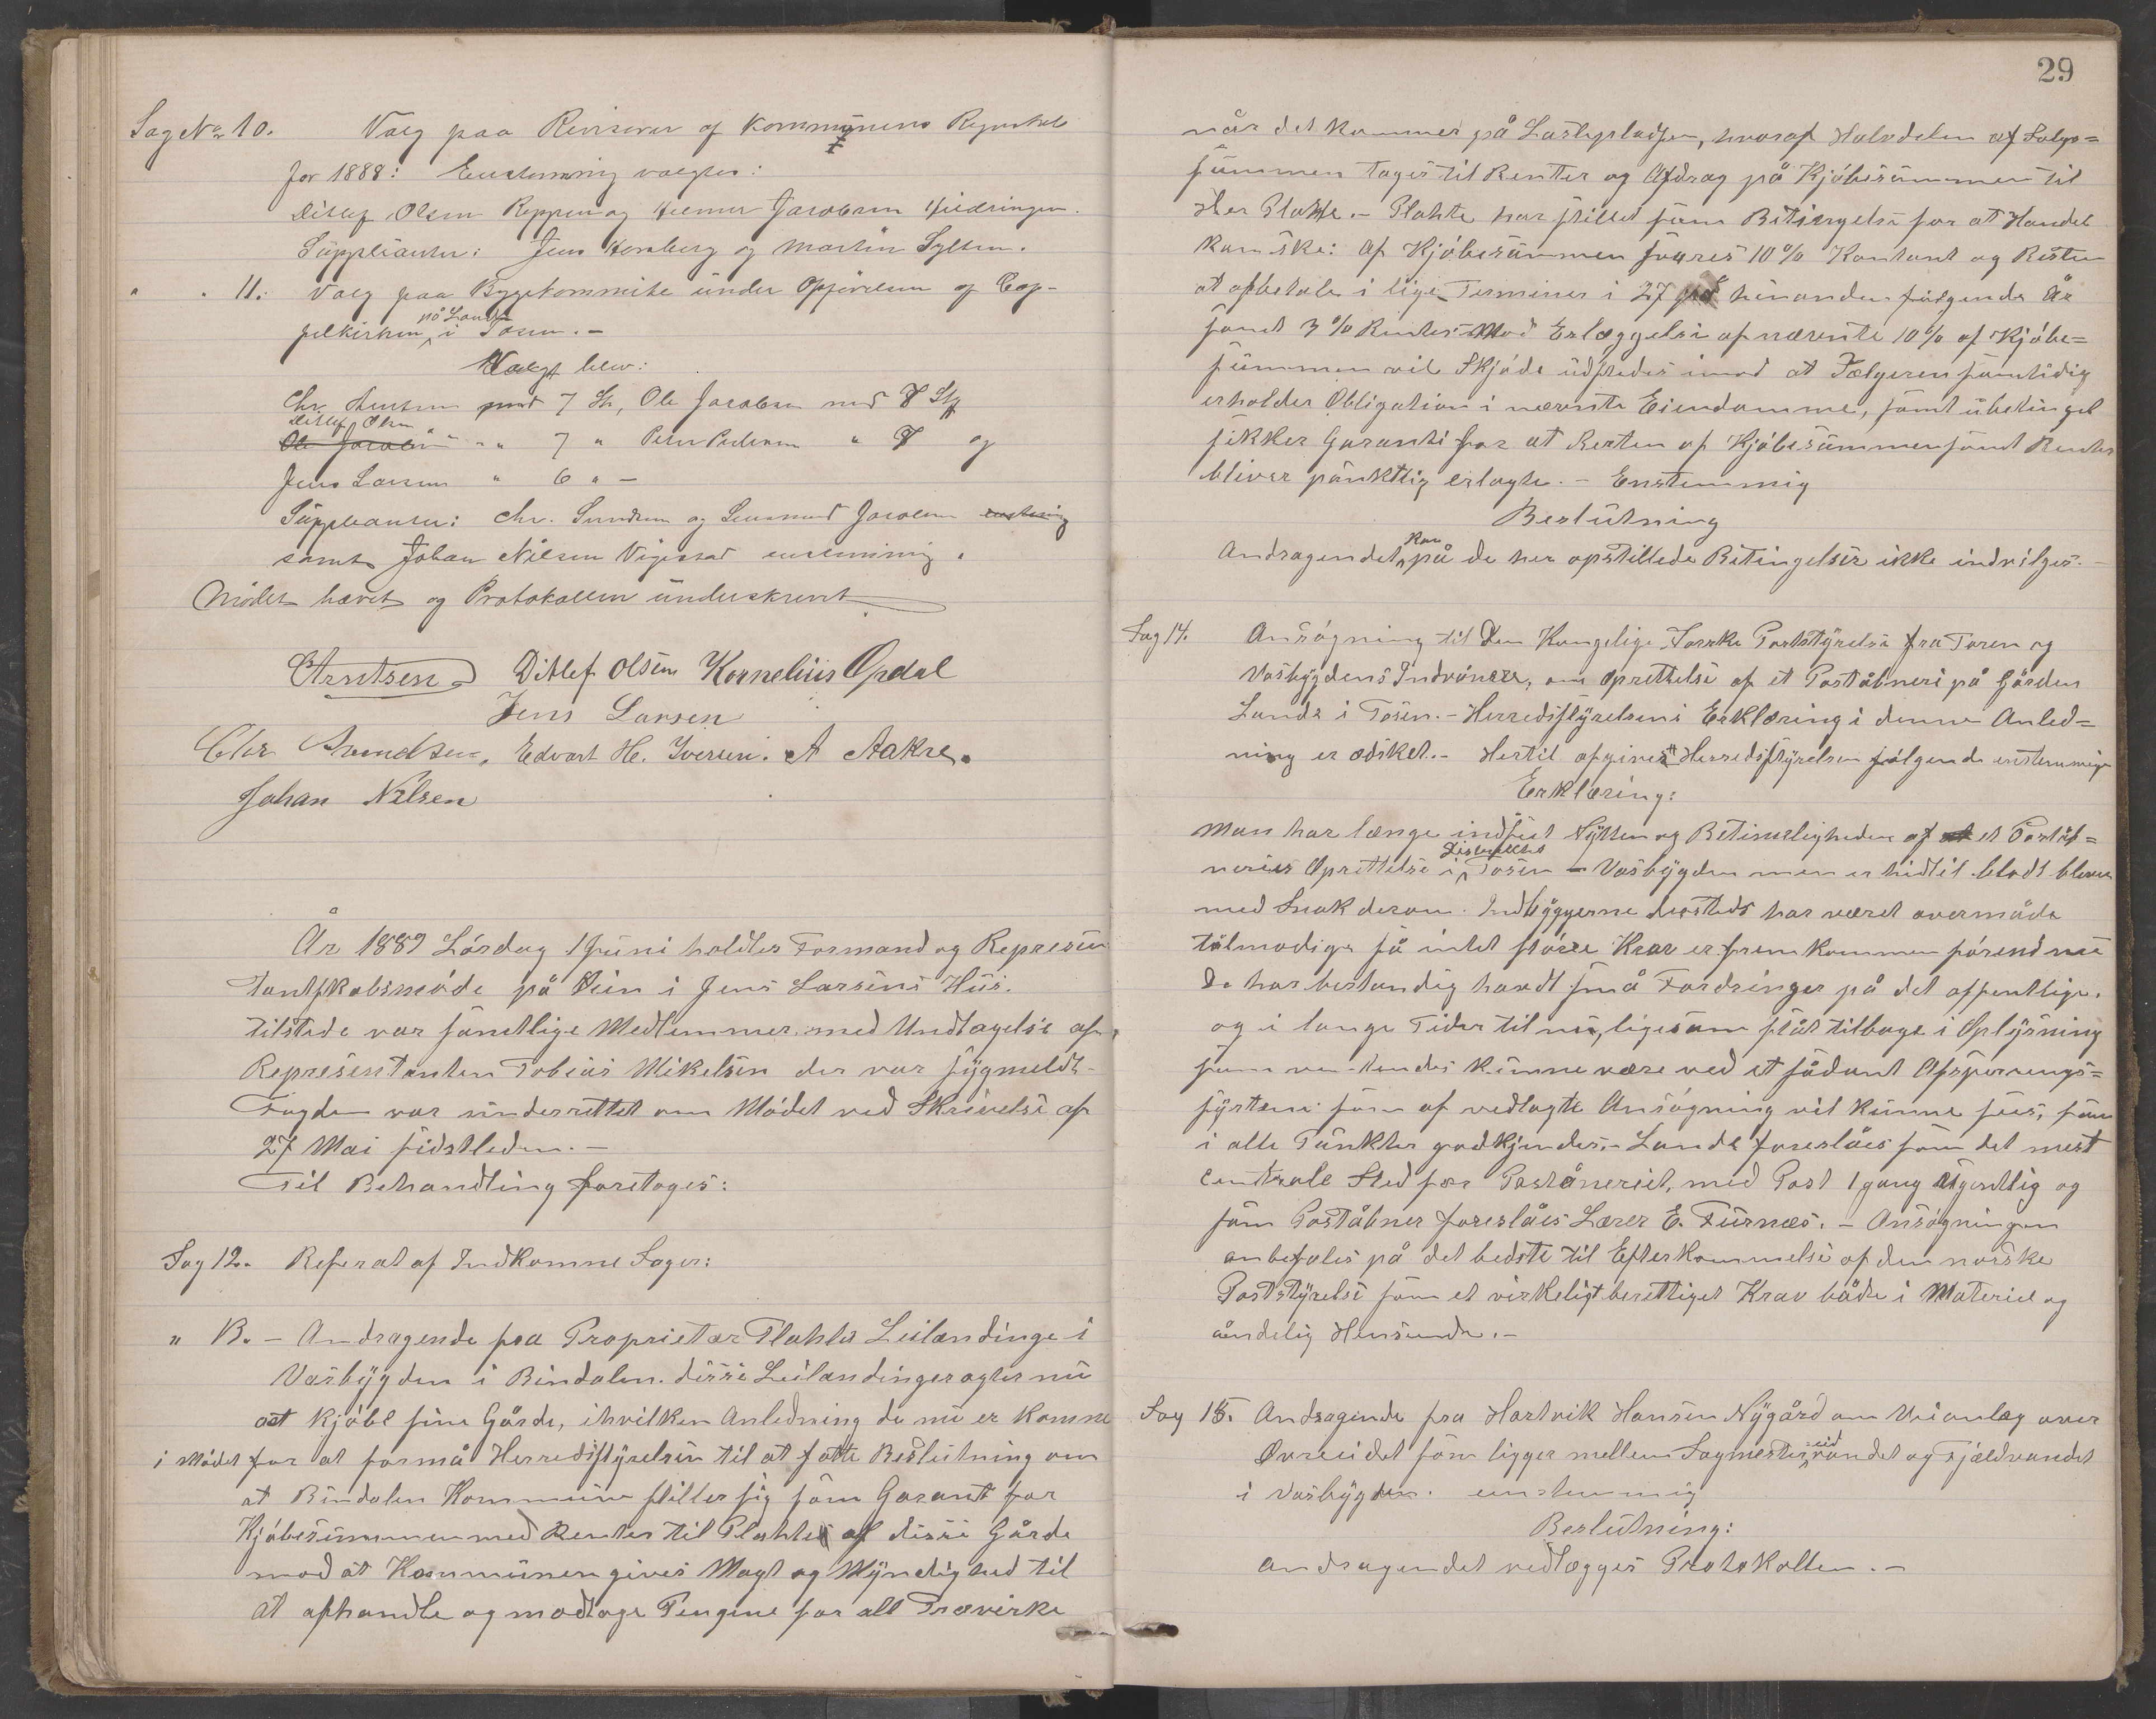 Sag No 10. Valg paa Revisorer af Kommunens Regnskab
for 1888: Enstemmig valgtes:
Ditlef Olsen Reppen og Jacobsen
Suppleanter: Jens Hornberg og Martin Sylten.
" " 11. Valg paa Byggekommite under Opførelsen af Cap-
pelkirken på Lande i Tosen. -
Valgt blev:
Chr. med 7 St, Ole Jacobsen med 8 St
Ditlef Olsen
Ole Jacobsen " " 7 " Peter Pedersen " 8 og
Jens Larsen " 6 " -
Suppleanter: Chr. Svendsen og Jacobsen
samt Johan Nilsen enstemmig.
Mødet hævet og Protokollen underskrevet
CArntsen Ditlef Olsen Kornelius Opdal
Jens Larsen
Chr Svendsen, Edvart H. Iversen. A Aakre.
Johan Nilsen
År 1889 Lørdag 1 Juni holdtes Formand og Represen
tantskabsmøde på Vein i Jens Larsens Hus.
Tilstede var samtlige Medlemmer med Undtagelse af
Representanten Tobias Mikelsen der var sygmeldt -
Fogden var underrettet om Mødet ved Skrivelse af
27 Mai sidstleden. -
Til Behandling foretoges:
Sag 12. Referat af Indkomne Sager:
" 13. - Andragende fra Proprietær Plahtes Leilændinge i
Vasbygden i Bindalen. disse Leilændinger agter nu
at kjøbe sine Gårde, i hvilken Anledning de nu er komne
i Mødet for at formå Herredsstyrelsen til at fatte Beslutning om
at Bindalen Kommune stiller sig som Garant for
Kjøbesummen med Renter til Plahte af disse Gårde
mod at Kommunen gives Magt og Myndighed til
at afhandle og modtage Pengene for alt Trævirke
29
når det kommer på Lasteplassen, hvoraf Halvdelen af Salgs=
summen tages til Renter og Afdrag på Kjøbesummen til
Hr Plahte. - Plahte har stillet som Betingelse for at Handel
kan ske: Af Kjøbesummen svares 10% Kontant og Resten
at afbetale i lige Terminer i 27 på hinanden følgende År
samt 3% Renter. Mod Erlæggelse af nævnte 10% af Kjøbe=
summen vil Skjøde udstedes imod at Sælgeren samtidig
erholder Obligation i nævnte Eiendomme, samt ubetinget
sikker Garanti for at Resten af Kjøbesummen samt Renter
bliver punktlig erlagte. - Enstemmig
Beslutning
Andragendet kan på de her opstillede Betingelser ikke indvilges. -
Sag 14. Ansøgning til Den Kongelige Norske Poststyrelse fra Tosen og
Vasbygdens Indvånere, om Oprettelse af et Poståbneri på Gården
Lande i Tosen. - Herredsstyrelsens Erklæring i denne Anled=
ning er æsket. - Hertil afgives Herredsstyrelsen følgende enstemmige
Erklæring:
Man har længe indseet Nytten og Betimeligheden af et Poståb=
neries Oprettelse i Distriktet Tosen - Vasbygden men er hidtil blodt bleven
med Snak derom. Indbyggerne dersteds har været overmåde
tålmodige så intet større Krav er fremkommen førend nu
De har bestandig havdt små Fordringer på det offentlige.
og i lange Tider til nu, ligesom stået tilbage i Oplysning
som kunne være ved et sådant Afsperrengs=
system som af vedlagte Ansøgning vil kunne sees, som
i alle Punkter godkjendes. - Lande foreslåes som det mest
centrale Sted for Poståneriet, med Post 1 gang Ugentlig og
som Poståbner foreslåes Lærer E. Furnæs. - Ansøgningen
anbefales på det bedste til Efterkommelse af den norske
Poststyrelse som et virkeligt berettiget Krav både i Materiel og
åndelig Hensende. -
Sag 15. Andragende fra Hartvik Hansen Nygård om Veianlæg over
Øvreeidet som ligger mellem Sagmestereidvandet og Fjeldvandet
i Vasbygden. enstemmig
Beslutning:
Andragendet vedlægges Protokollen. -